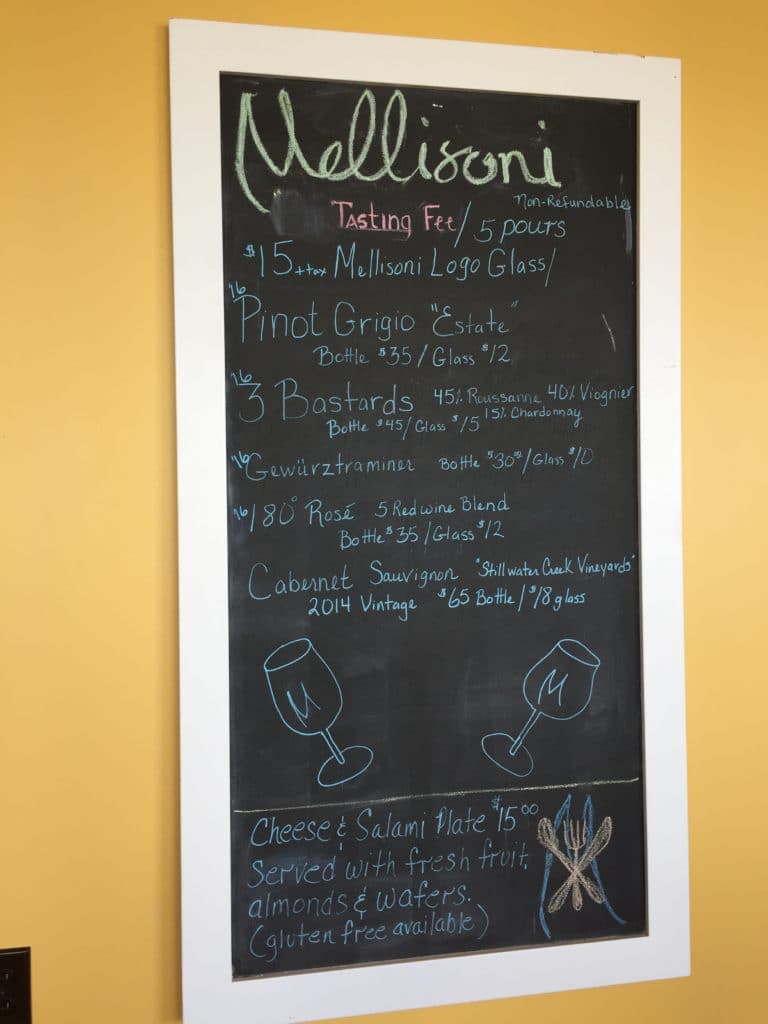 Mellisoni
Non-Refundable
Tasting Fee / 5 pours
$15 + tax Mellisoni Logo Glass/
'16
Pinot Grigio "Estate"
Bottle $35 / Glass $12
'16
3 Bastards 45% Roussanne 40% Viognier
15% Chardonnay
Bottle $45 / Glass $15
'16 Gewürztraminer Bottle $30⁰⁰ / Glass $10
'16 180° Rosé 5 Red wine Blend
Bottle $35 / Glass $12
Cabernet Sauvignon "Stillwater Creek Vineyards"
2014 Vintage $65 Bottle / $18 glass
M M
Cheese & Salami Plate $15⁰⁰
Served with fresh fruit,
almonds & wafers.
(gluten free available)